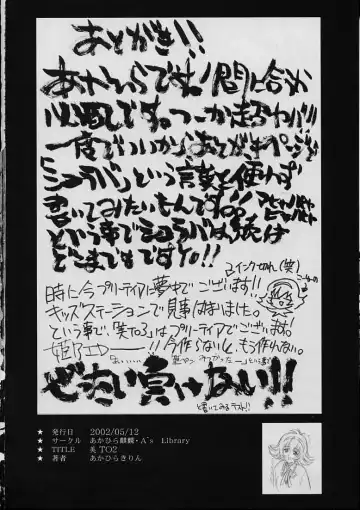 あとがき!!
あかひらです。間に合うか
必死です。つーか走るわ!!!
一度でいいからあとがきページを
「シュラバ」という言葉を使わず
書いてみたいもんですが!!
という事でシュラバは続くよ
どこまでもですヨ。!!
インク切れ(笑)
時に今プリーティアに夢中でございます!!
キッズステーションで見事はまりました。
という事で、「笑TO3」はプリーティアでございます!
姫乃ェロー!!今作らないと、もう作れない。
ぜったい負けない!!
と書いてみるテスト!!
★ 発行日 2002/05/12
★ サークル あかひら麒麟・A's Library
★ TITLE 美TO2
★ 著者 あかひらきりん